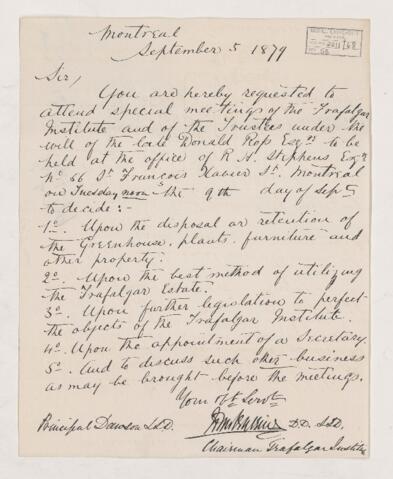 Montreal
September 5 1879
Sir,
You are hereby requested to
attend special meetings of the Trafalgar
Institute and of the Trustees under the
will of the late Donald Ross Esqre to be
held at the office of R. A. Stephens Esqre
No 66 St François Xavier St. Montreal
on Tuesday noon the 9th day of Sept
to decide:-
1o. Upon the disposal or retention of
the Greenhouse, plants, furniture and
other property.
2o. Upon the best method of utilizing
the Trafalgar Estate.
3o. Upon further legislation to perfect
the objects of the Trafalgar Institute.
4o. Upon the appointment of a Secretary.
5o. And to discuss such other business
as may be brought before the meetings.
Your Obt Servt
D.D. LL.D.
Principal Dawson LL.D.
Chairman Trafalgar Institute